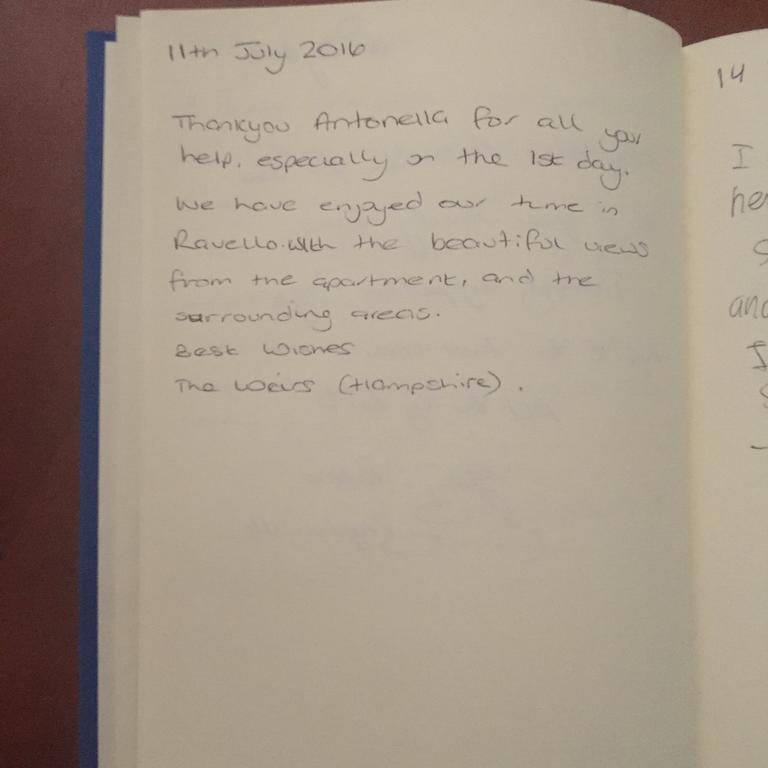 11th July 2016
Thankyou Antonella for all your
help, especially on the 1st day.
We have enjoyed our time in
Ravello. With the beautiful views
from the apartment, and the
surrounding areas.
Best Wishes
The Weirs (Hampshire).
14
I
and